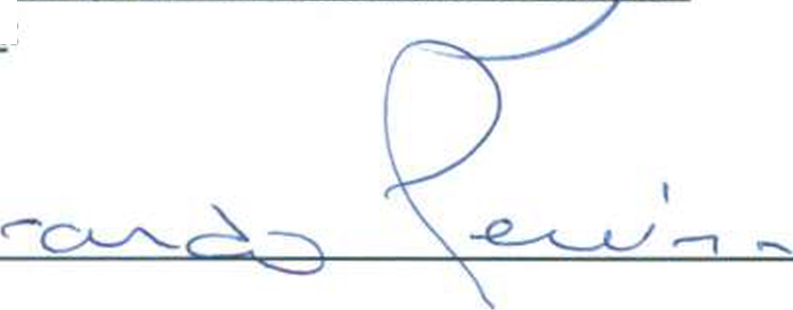 rando Pereira